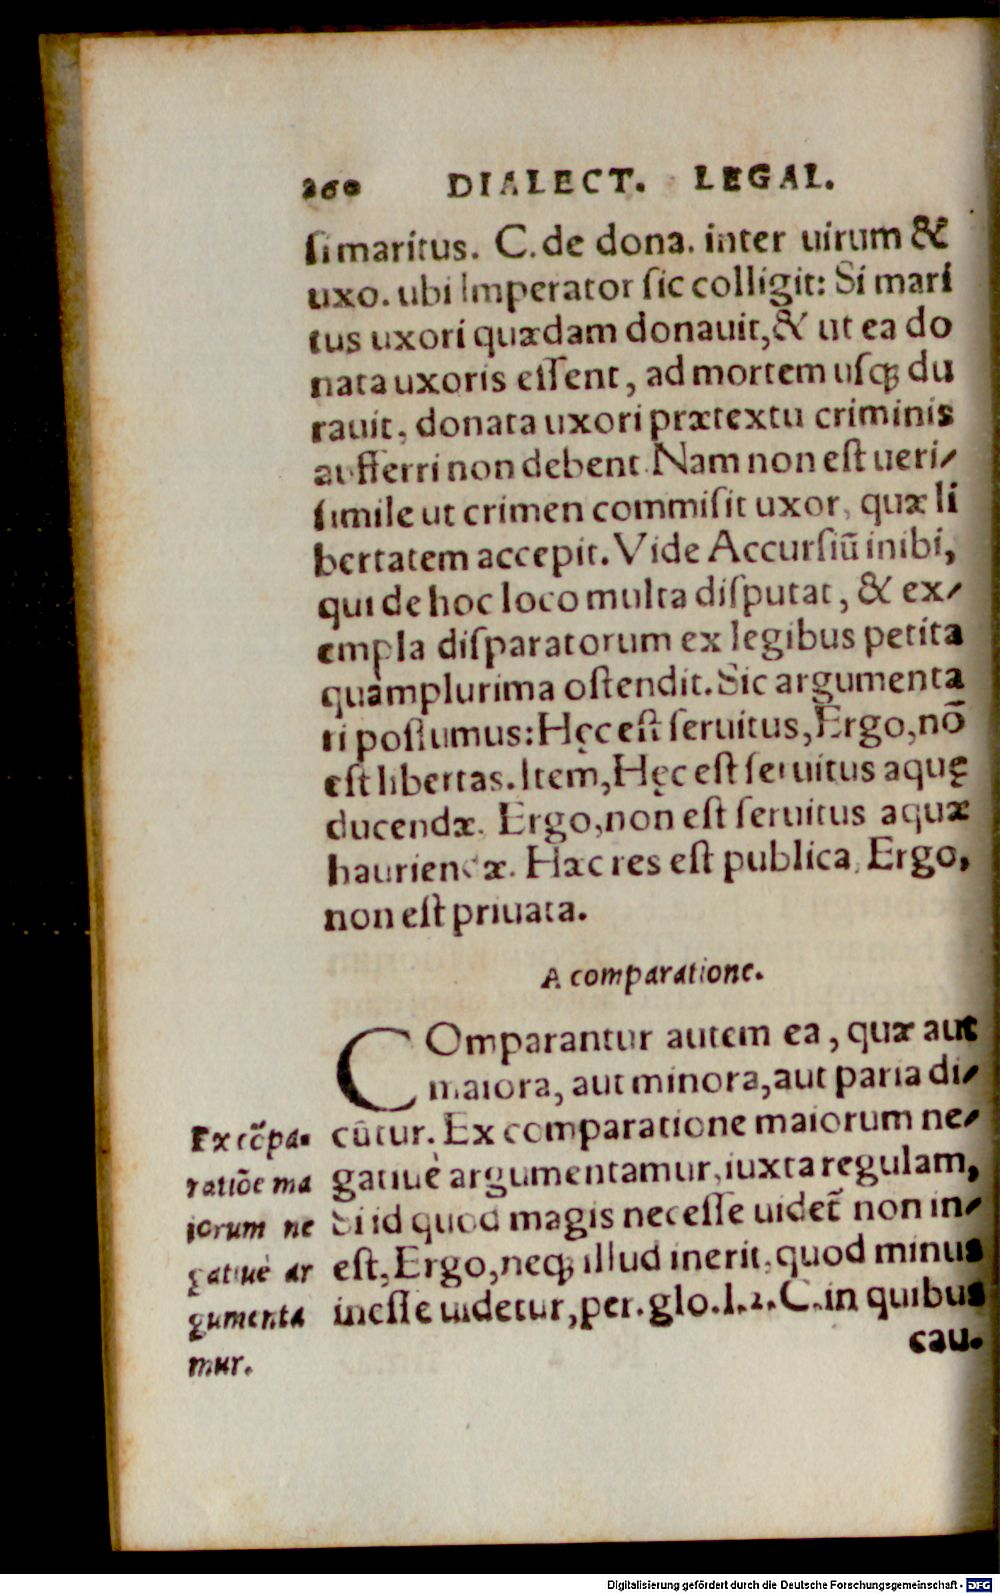 260 DIALECT. LEGAL.
ſi maritus. C. de dona. inter uirum &
uxo. ubi Imperator ſic colligit: Si mari
tus uxori quædam donauit, & ut ea do
nata uxoris eſſent, ad mortem uſq; du
rauit, donata uxori prætextu criminis
aufferri non debent. Nam non eſt ueri-
ſimile ut crimen commiſit uxor, quæ li
bertatem accepit. Vide Accurſiū inibi,
qui de hoc loco multa diſputat, & ex-
empla diſparatorum ex legibus petita
quàmplurima oſtendit. Sic argumenta
ri poſſumus: Hęc eſt ſeruitus, Ergo, nō
eſt libertas. Item, Hęc eſt ſeruitus aquę
ducendæ. Ergo, non eſt ſeruitus aquæ
hauriendæ. Hæc res eſt publica, Ergo,
non eſt priuata.
A comparatione.
COmparantur autem ea, quæ aut
maiora, aut minora, aut paria di-
cūtur. Ex comparatione maiorum ne-
gatiuè argumentamur, iuxta regulam,
Si id quod magis neceſſe uidet̃ non in-
eſt, Ergo, neq; illud inerit, quod minus
ineſſe uidetur, per. glo. l. 2. C. in quibus
cau.
Ex cōpa-
ratiōe ma
iorum ne
gatiuè ar
gumenta
mur.
Digitalisierung gefördert durch die Deutsche Forschungsgemeinschaft - DFG